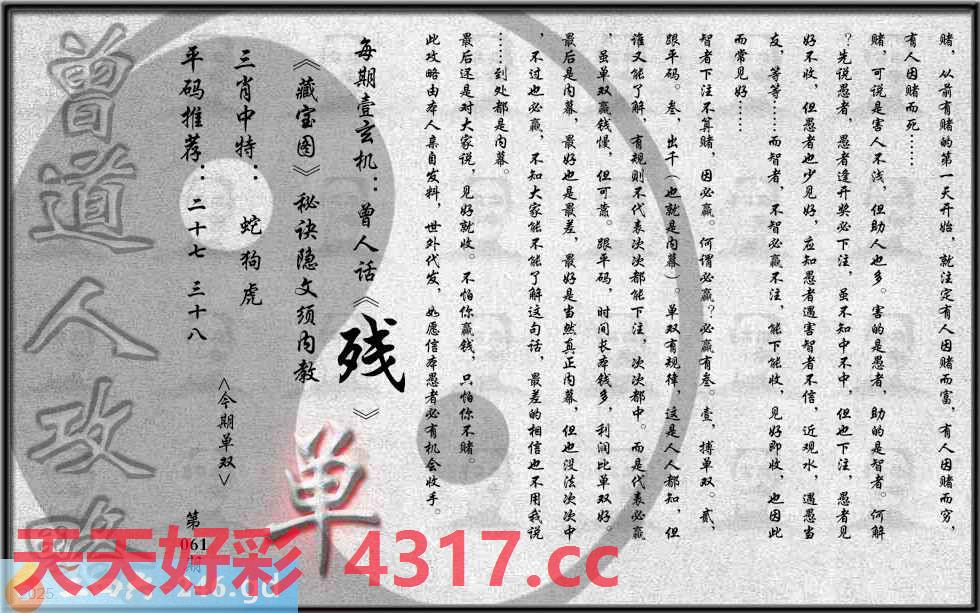 赌，从前有赌的第一天开始，就注定有人因赌而富，有人因赌而穷，
有人因赌而死……
赌，可说是害人不浅，但助人也多。害的是愚者，助的是智者。何解
？先说愚者，愚者逢开奖必下注，虽不知中不中，但也下注，愚者见
好不收，但愚者也少见好，应知愚者遇害智者不信，近观水，遇愚当
友，等等……而智者，不智必赢不注，能下能收，见好即收，也因此
而常见好……
智者下注不算赌，因必赢。何谓必赢？必赢有叁。壹，搏单双。贰，
跟平码。叁，出千（也就是内幕）。单双有规律，这是人人都知，但
谁又能了解，有规则不代表次次都能下注，次次都中。而是代表必赢
，虽单双赢钱慢，但可靠。跟平码，时间长本钱多，利润比单双好。
最后是内幕，最好也是最差，最好是当然真正内幕，但也没法次次中
，不过也必赢，不知大家能不能了解这句话，最差的相信也不用我说
……到处都是内幕。
最后还是对大家说，见好就收。不怕你赢钱，只怕你不赌。
此攻略由本人亲自发料，世外代发，如愿信本愚者必有机会收手。
每期壹玄机：曾人话《残》
《藏宝图》秘诀隐文须内教
三肖中特：蛇狗虎
平码推荐：二十七 三十八
<今期单双>
单
第061期
曾道人攻略
天天好彩 4317.cc
2025
246.gd